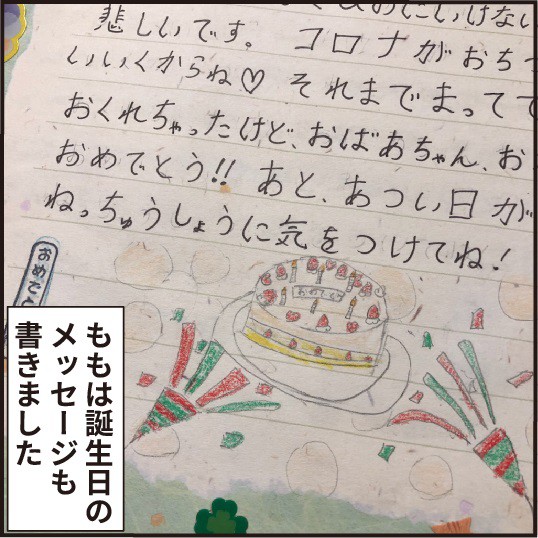 悲しいです。コロナがおちつ
いいくからね♡それまでまってて
おくれちゃったけど、おばあちゃん、お
おめでとう!!あと、あつい日が
ねっちゅうしょうに気をつけてね!
おめでと
おめでとう
ももは誕生日の
メッセージも
書きました